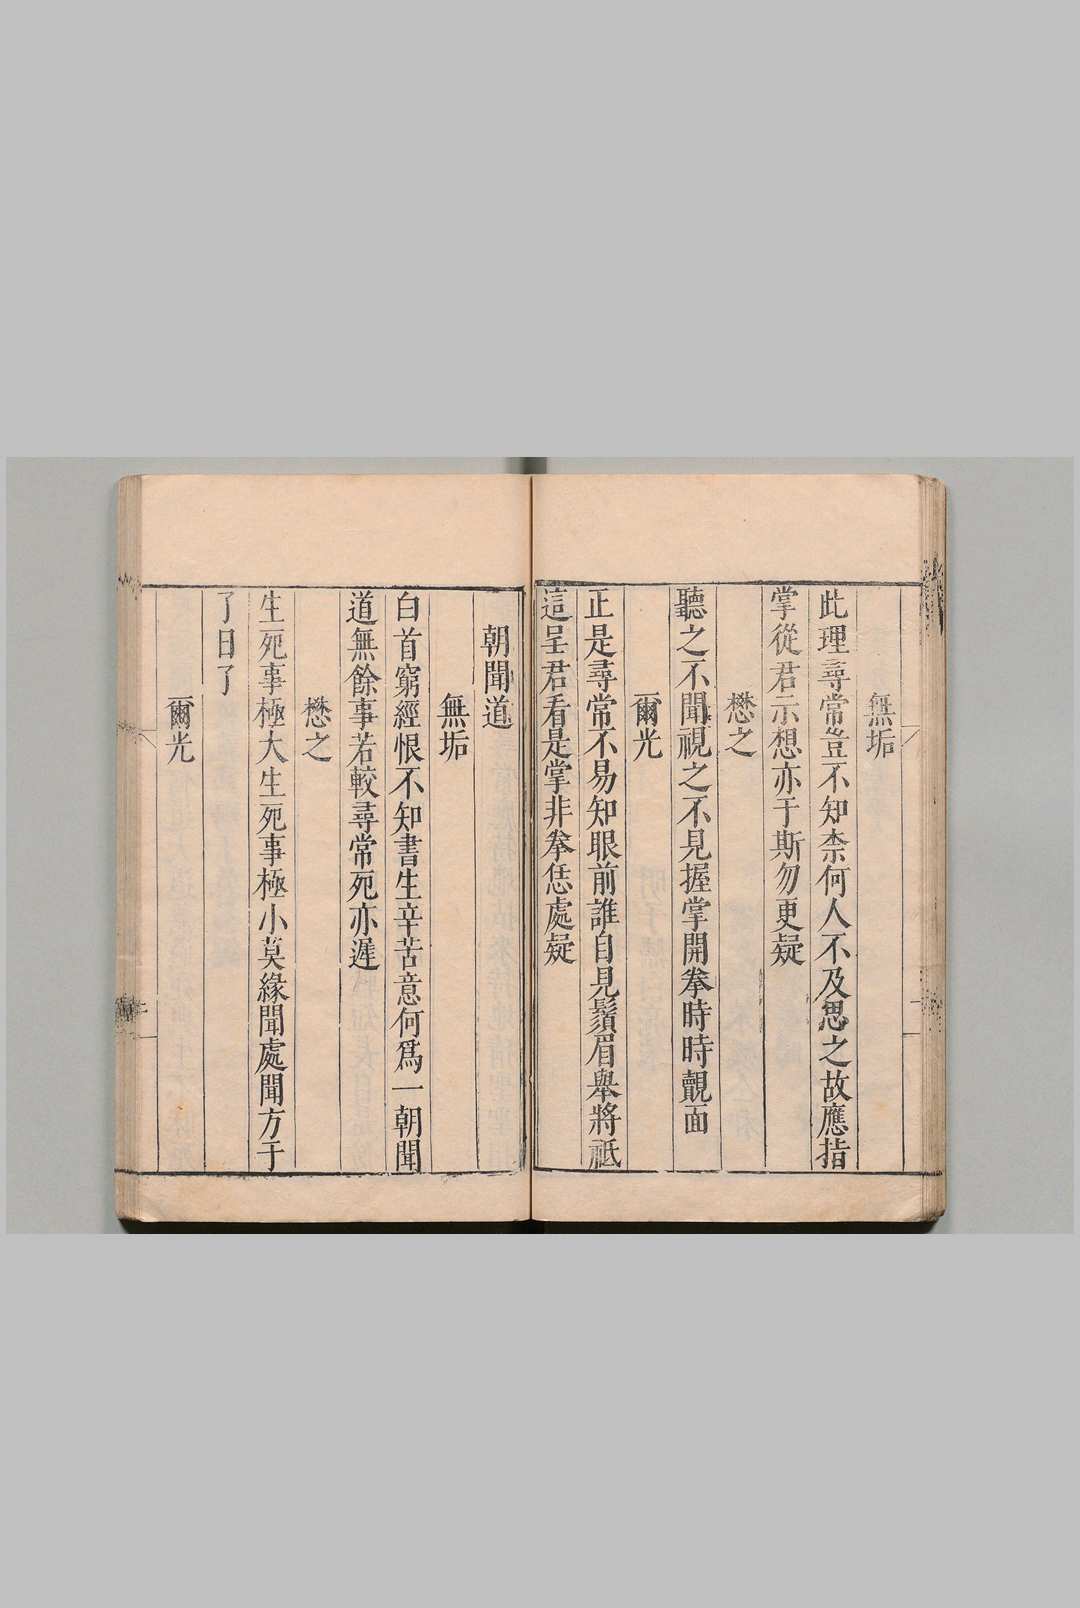 無垢
此理尋常豈不知柰何人不及思之故應指
掌從君示想亦于斯勿更疑
懋之
聽之不聞視之不見握掌開拳時時覿面
爾光
正是尋常不易知眼前誰自見鬚眉舉將祗
這呈君看是掌非拳恁處疑
朝聞道
無垢
白首窮經恨不知書生辛苦意何爲一朝聞
道無餘事若較尋常死亦遲
懋之
生死事極大生死事極小莫緣聞處聞方于
了日了
爾光